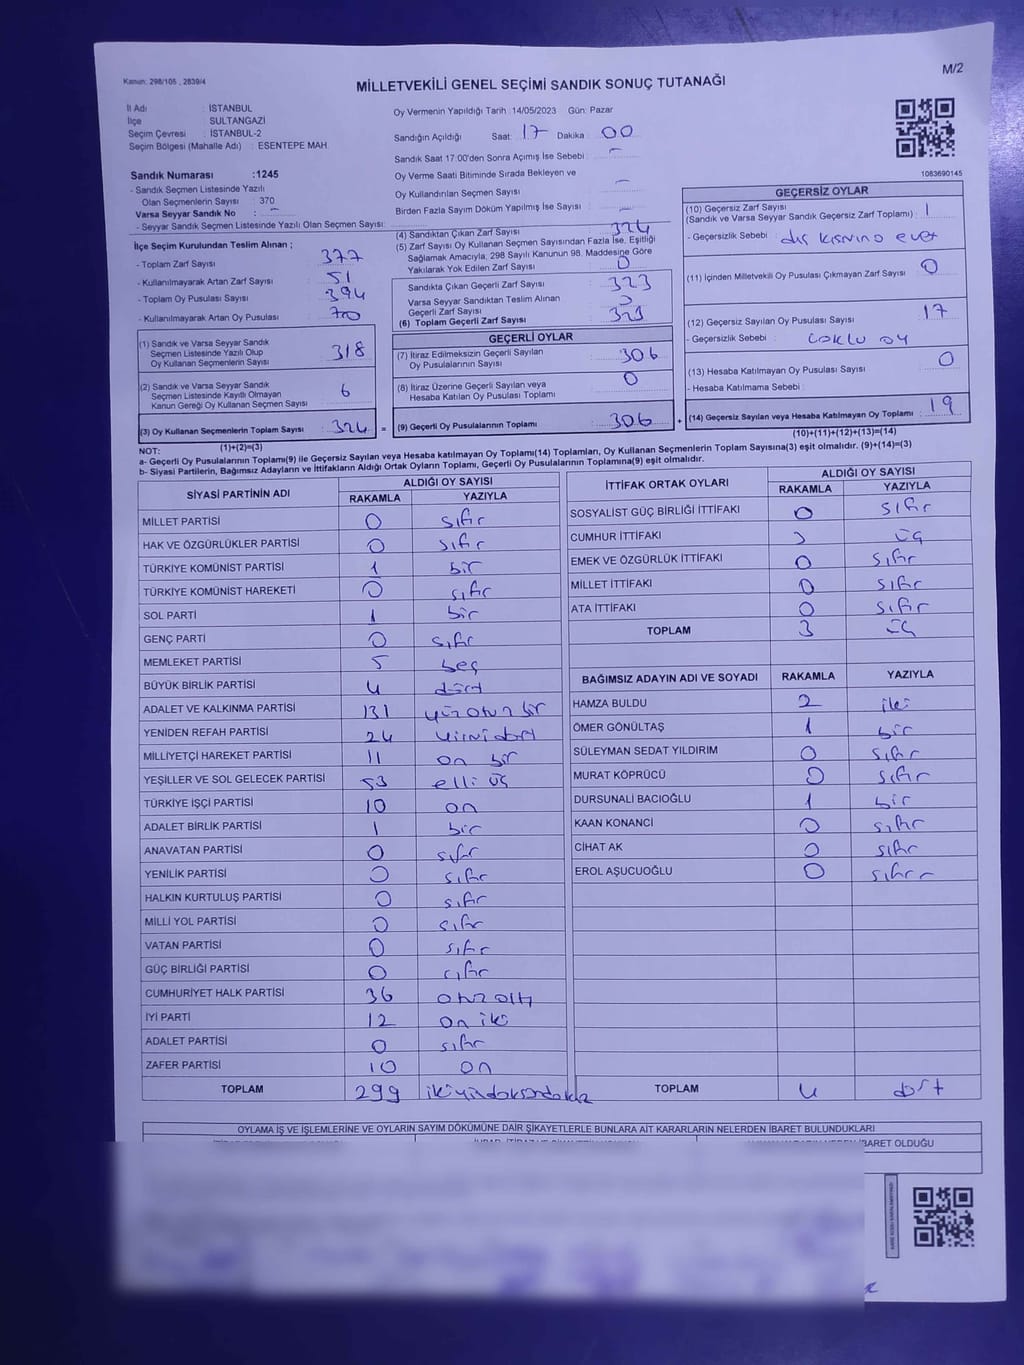 Kanun: 298/105 , 2839/4
M/2
MİLLETVEKİLİ GENEL SEÇİMİ SANDIK SONUÇ TUTANAĞI
İl Adı : İSTANBUL
İlçe : SULTANGAZİ
Seçim Çevresi : İSTANBUL-2
Seçim Bölgesi (Mahalle Adı) : ESENTEPE MAH.
Sandık Numarası :1245
- Sandık Seçmen Listesinde Yazılı
Olan Seçmenlerin Sayısı : 370
Varsa Seyyar Sandık No : –
- Seyyar Sandık Seçmen Listesinde Yazılı Olan Seçmen Sayısı:
İlçe Seçim Kurulundan Teslim Alınan ;
- Toplam Zarf Sayısı : 377
- Kullanılmayarak Artan Zarf Sayısı : 51
- Toplam Oy Pusulası Sayısı : 394
- Kullanılmayarak Artan Oy Pusulası : 70
(1) Sandık ve Varsa Seyyar Sandık
Seçmen Listesinde Yazılı Olup
Oy Kullanan Seçmenlerin Sayısı : 318
(2) Sandık ve Varsa Seyyar Sandık
Seçmen Listesinde Kayıtlı Olmayan
Kanun Gereği Oy Kullanan Seçmen Sayısı : 6
(3) Oy Kullanan Seçmenlerin Toplam Sayısı : 324
(1)+(2)=(3)
Oy Vermenin Yapıldığı Tarih :14/05/2023 Gün: Pazar
Sandığın Açıldığı Saat: 17 Dakika : 00
Sandık Saat 17:00'den Sonra Açımış İse Sebebi : –
Oy Verme Saati Bitiminde Sırada Bekleyen ve
Oy Kullandırılan Seçmen Sayısı : –
Birden Fazla Sayım Döküm Yapılmış İse Sayısı : –
(4) Sandıktan Çıkan Zarf Sayısı : 324
(5) Zarf Sayısı Oy Kullanan Seçmen Sayısından Fazla İse, Eşitliği
Sağlamak Amacıyla, 298 Sayılı Kanunun 98. Maddesine Göre
Yakılarak Yok Edilen Zarf Sayısı : 0
Sandıkta Çıkan Geçerli Zarf Sayısı : 323
Varsa Seyyar Sandıktan Teslim Alınan
Geçerli Zarf Sayısı : 0
(6) Toplam Geçerli Zarf Sayısı : 323
GEÇERLİ OYLAR
(7) İtiraz Edilmeksizin Geçerli Sayılan
Oy Pusulalarının Sayısı : 306
(8) İtiraz Üzerine Geçerli Sayılan veya
Hesaba Katılan Oy Pusulası Toplamı : 0
= (9) Geçerli Oy Pusulalarının Toplamı : 306 +
1083690145
GEÇERSİZ OYLAR
(10) Geçersiz Zarf Sayısı
(Sandık ve Varsa Seyyar Sandık Geçersiz Zarf Toplamı) : 1
- Geçersizlik Sebebi : dış kısmına evet
(11) İçinden Milletvekili Oy Pusulası Çıkmayan Zarf Sayısı : 0
(12) Geçersiz Sayılan Oy Pusulası Sayısı : 17
- Geçersizlik Sebebi : çoklu oy
(13) Hesaba Katılmayan Oy Pusulası Sayısı : 0
- Hesaba Katılmama Sebebi :
(14) Geçersiz Sayılan veya Hesaba Katılmayan Oy Toplamı : 19
(10)+(11)+(12)+(13)=(14)
NOT:
a- Geçerli Oy Pusulalarının Toplamı(9) ile Geçersiz Sayılan veya Hesaba katılmayan Oy Toplamı(14) Toplamları, Oy Kullanan Seçmenlerin Toplam Sayısına(3) eşit olmalıdır. (9)+(14)=(3)
b- Siyasi Partilerin, Bağımsız Adayların ve İttifakların Aldığı Ortak Oyların Toplamı, Geçerli Oy Pusulalarının Toplamına(9) eşit olmalıdır.
SİYASİ PARTİNİN ADI ALDIĞI OY SAYISI
RAKAMLA YAZIYLA
MİLLET PARTİSİ 0 sıfır
HAK VE ÖZGÜRLÜKLER PARTİSİ 0 sıfır
TÜRKİYE KOMÜNİST PARTİSİ 1 bir
TÜRKİYE KOMÜNİST HAREKETİ 0 sıfır
SOL PARTİ 1 bir
GENÇ PARTİ 0 sıfır
MEMLEKET PARTİSİ 5 beş
BÜYÜK BİRLİK PARTİSİ 4 dört
ADALET VE KALKINMA PARTİSİ 131 yüz otuz bir
YENİDEN REFAH PARTİSİ 24 yirmi dört
MİLLİYETÇİ HAREKET PARTİSİ 11 on bir
YEŞİLLER VE SOL GELECEK PARTİSİ 53 elli üç
TÜRKİYE İŞÇİ PARTİSİ 10 on
ADALET BİRLİK PARTİSİ 1 bir
ANAVATAN PARTİSİ 0 sıfır
YENİLİK PARTİSİ 0 sıfır
HALKIN KURTULUŞ PARTİSİ 0 sıfır
MİLLİ YOL PARTİSİ 0 sıfır
VATAN PARTİSİ 0 sıfır
GÜÇ BİRLİĞİ PARTİSİ 0 sıfır
CUMHURİYET HALK PARTİSİ 36 otuz altı
İYİ PARTİ 12 on iki
ADALET PARTİSİ 0 sıfır
ZAFER PARTİSİ 10 on
TOPLAM 299 ikiyüzdoksandokuz
İTTİFAK ORTAK OYLARI ALDIĞI OY SAYISI
RAKAMLA YAZIYLA
SOSYALİST GÜÇ BİRLİĞİ İTTİFAKI 0 sıfır
CUMHUR İTTİFAKI 3 üç
EMEK VE ÖZGÜRLÜK İTTİFAKI 0 sıfır
MİLLET İTTİFAKI 0 sıfır
ATA İTTİFAKI 0 sıfır
TOPLAM 3 üç
BAĞIMSIZ ADAYIN ADI VE SOYADI RAKAMLA YAZIYLA
HAMZA BULDU 2 iki
ÖMER GÖNÜLTAŞ 1 bir
SÜLEYMAN SEDAT YILDIRIM 0 sıfır
MURAT KÖPRÜCÜ 0 sıfır
DURSUNALİ BACIOĞLU 1 bir
KAAN KONANCİ 0 sıfır
CİHAT AK 0 sıfır
EROL AŞUCUOĞLU 0 sıfır
TOPLAM 4 dört
OYLAMA İŞ VE İŞLEMLERİNE VE OYLARIN SAYIM DÖKÜMÜNE DAİR ŞİKAYETLERLE BUNLARA AİT KARARLARIN NELERDEN İBARET BULUNDUKLARI
İBARET OLDUĞU